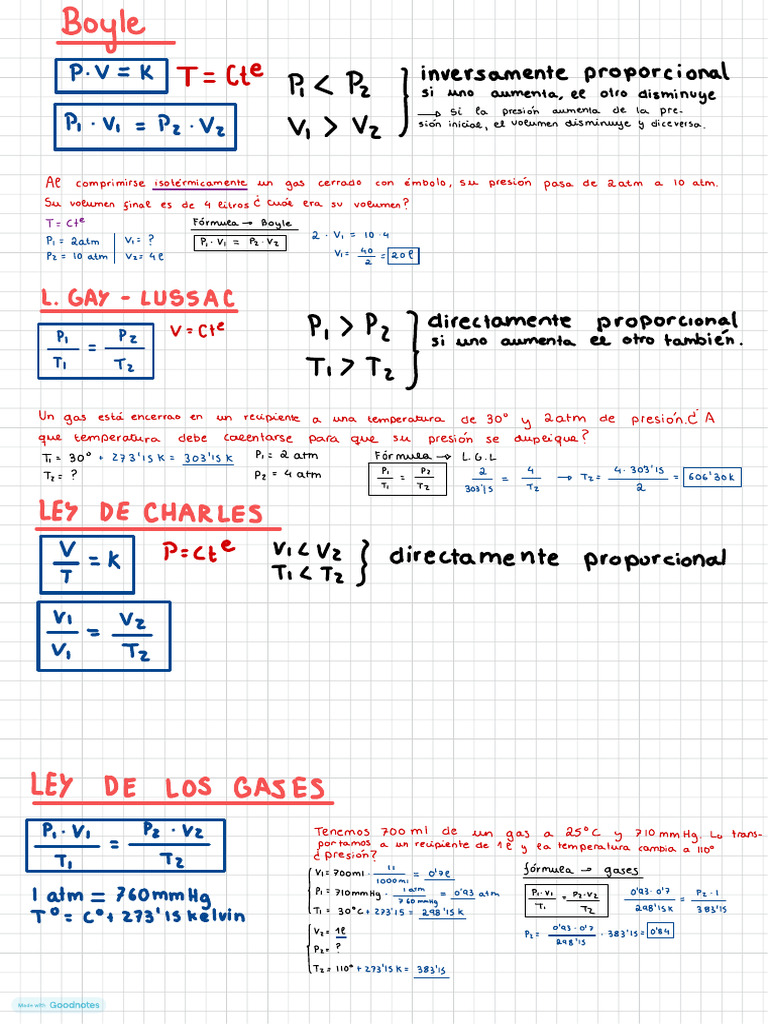 Boyle
P·V = K T = Cte
P1 · V1 = P2 · V2
P1 < P2
V1 > V2
inversamente proporcional
si uno aumenta, el otro disminuye
→ Si la presión aumenta de la pre-
sión inicial, el volumen disminuye y diceversa.
Al comprimirse isotérmicamente un gas cerrado con émbolo, su presión pasa de 2atm a 10 atm.
Su volumen final es de 4 litros ¿ cuál era su volumen?
T = Cte
P1 = 2atm V1 = ?
P2 = 10 atm V2 = 4l
Fórmula → Boyle
P1 · V1 = P2 · V2
2 · V1 = 10 · 4
V1 = 40/2 = 20l
L. GAY - LUSSAC
P1/T1 = P2/T2 V = Cte
P1 > P2
T1 > T2
directamente proporcional
si uno aumenta el otro también.
Un gas está encerrao en un recipiente a una temperatura de 30° y 2atm de presión. ¿ A
que temperatura debe calentarse para que su presión se duplique?
T1 = 30° + 273'15 K = 303'15 K P1 = 2 atm
T2 = ? P2 = 4 atm
Fórmula → L.G.L
P1/T1 = P2/T2
2/303'15 = 4/T2 → T2 = 4·303'15/2 = 606'30K
LEY DE CHARLES
V/T = K P = Cte
V1 < V2
T1 < T2
directamente proporcional
V1/V1 = V2/T2
LEY DE LOS GASES
P1 · V1/T1 = P2 · V2/T2
1 atm = 760mmHg
T° = C° + 273'15 Kelvin
Tenemos 700 ml de un gas a 25°C y 710 mmHg. Lo trans-
portamos a un recipiente de 1l y la temperatura cambia a 110°
¿ presión?
V1 = 700ml · 1l/1000ml = 0'7l
P1 = 710mmHg · 1atm/760mmHg = 0'93 atm
T1 = 30°C + 273'15 = 298'15 K
V2 = 1l
P2 = ?
T2 = 110° + 273'15 K = 383'15
fórmula → gases
P1·V1/T1 = P2·V2/T2
0'93·0'7/298'15 K = P2·1/383'15
P2 = 0'93·0'7/298'15 · 383'15 = 0'84
Made with Goodnotes